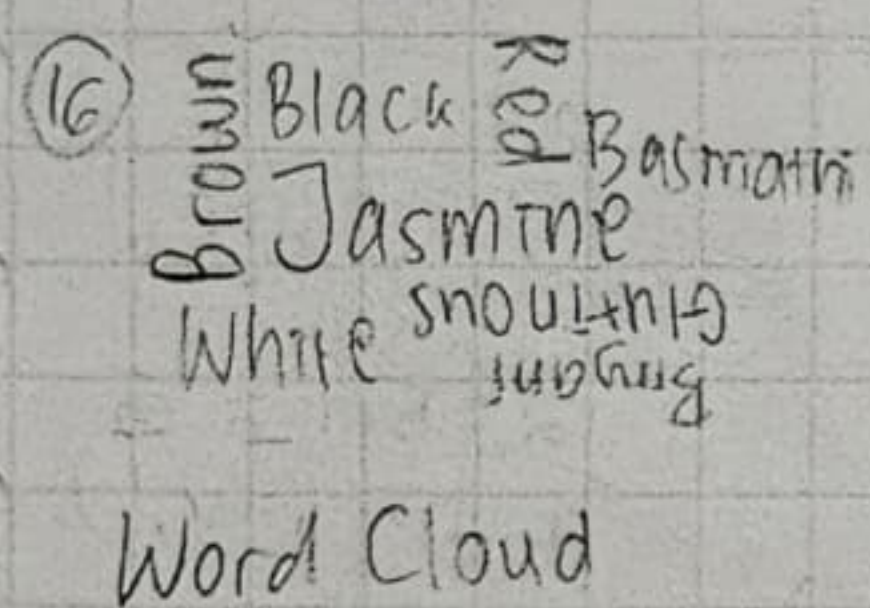 16
Brown
Black
Red
Basmati
Jasmine
White
Glutinous
Biryani
Word Cloud